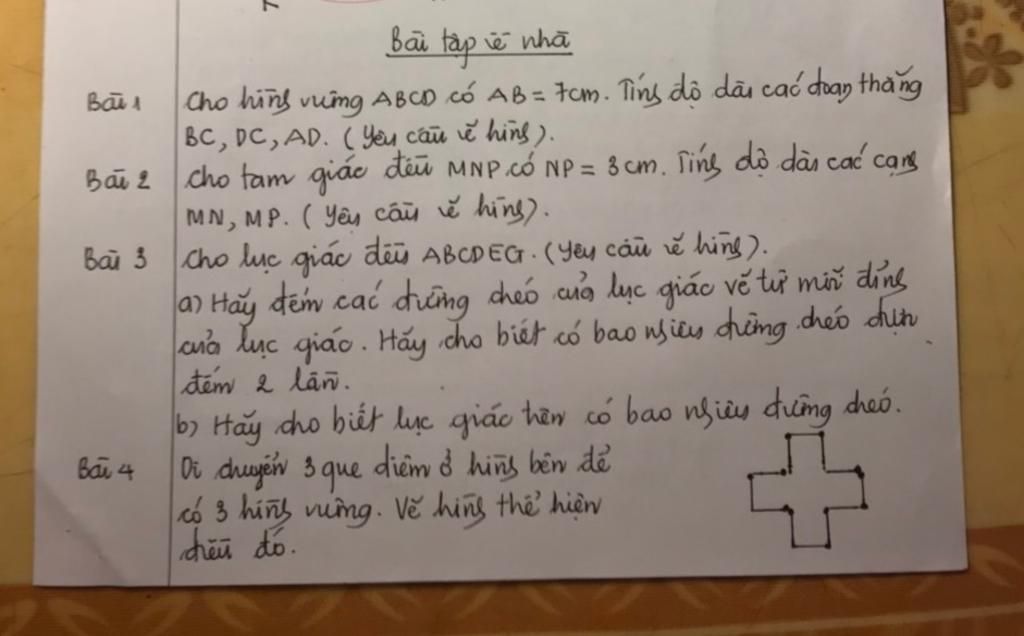 Bài tập về nhà
Bài 1 Cho hình vuông ABCD có AB = 7cm. Tính độ dài các đoạn thẳng
BC, DC, AD. (Yêu cầu vẽ hình).
Bài 2 Cho tam giác đều MNP có NP = 3cm. Tính độ dài các cạnh
MN, MP. (Yêu cầu vẽ hình).
Bài 3 Cho lục giác đều ABCDEG. (Yêu cầu vẽ hình).
a) Hãy đếm các đường chéo của lục giác vẽ từ mỗi đỉnh
của lục giác. Hãy cho biết có bao nhiêu đường chéo được
đếm 2 lần.
b) Hãy cho biết lục giác trên có bao nhiêu đường chéo.
Bài 4 Di chuyển 3 que diêm ở hình bên để
có 3 hình vuông. Vẽ hình thể hiện
điều đó.